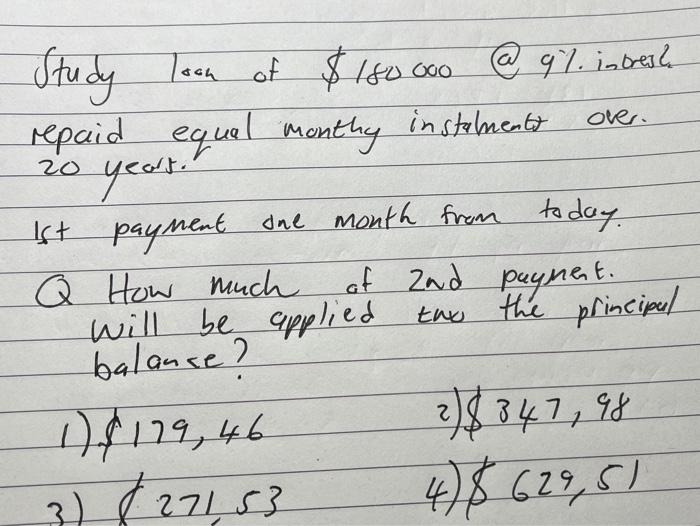 Study loan of $180 000 @ 9%. intrest
repaid equal monthy instalments over.
20 years.
1st payment one month from today.
Q How much of 2nd payment.
will be applied the principal
balance?
1) $179,46 2) $347,98
3) $271,53 4) $629,51